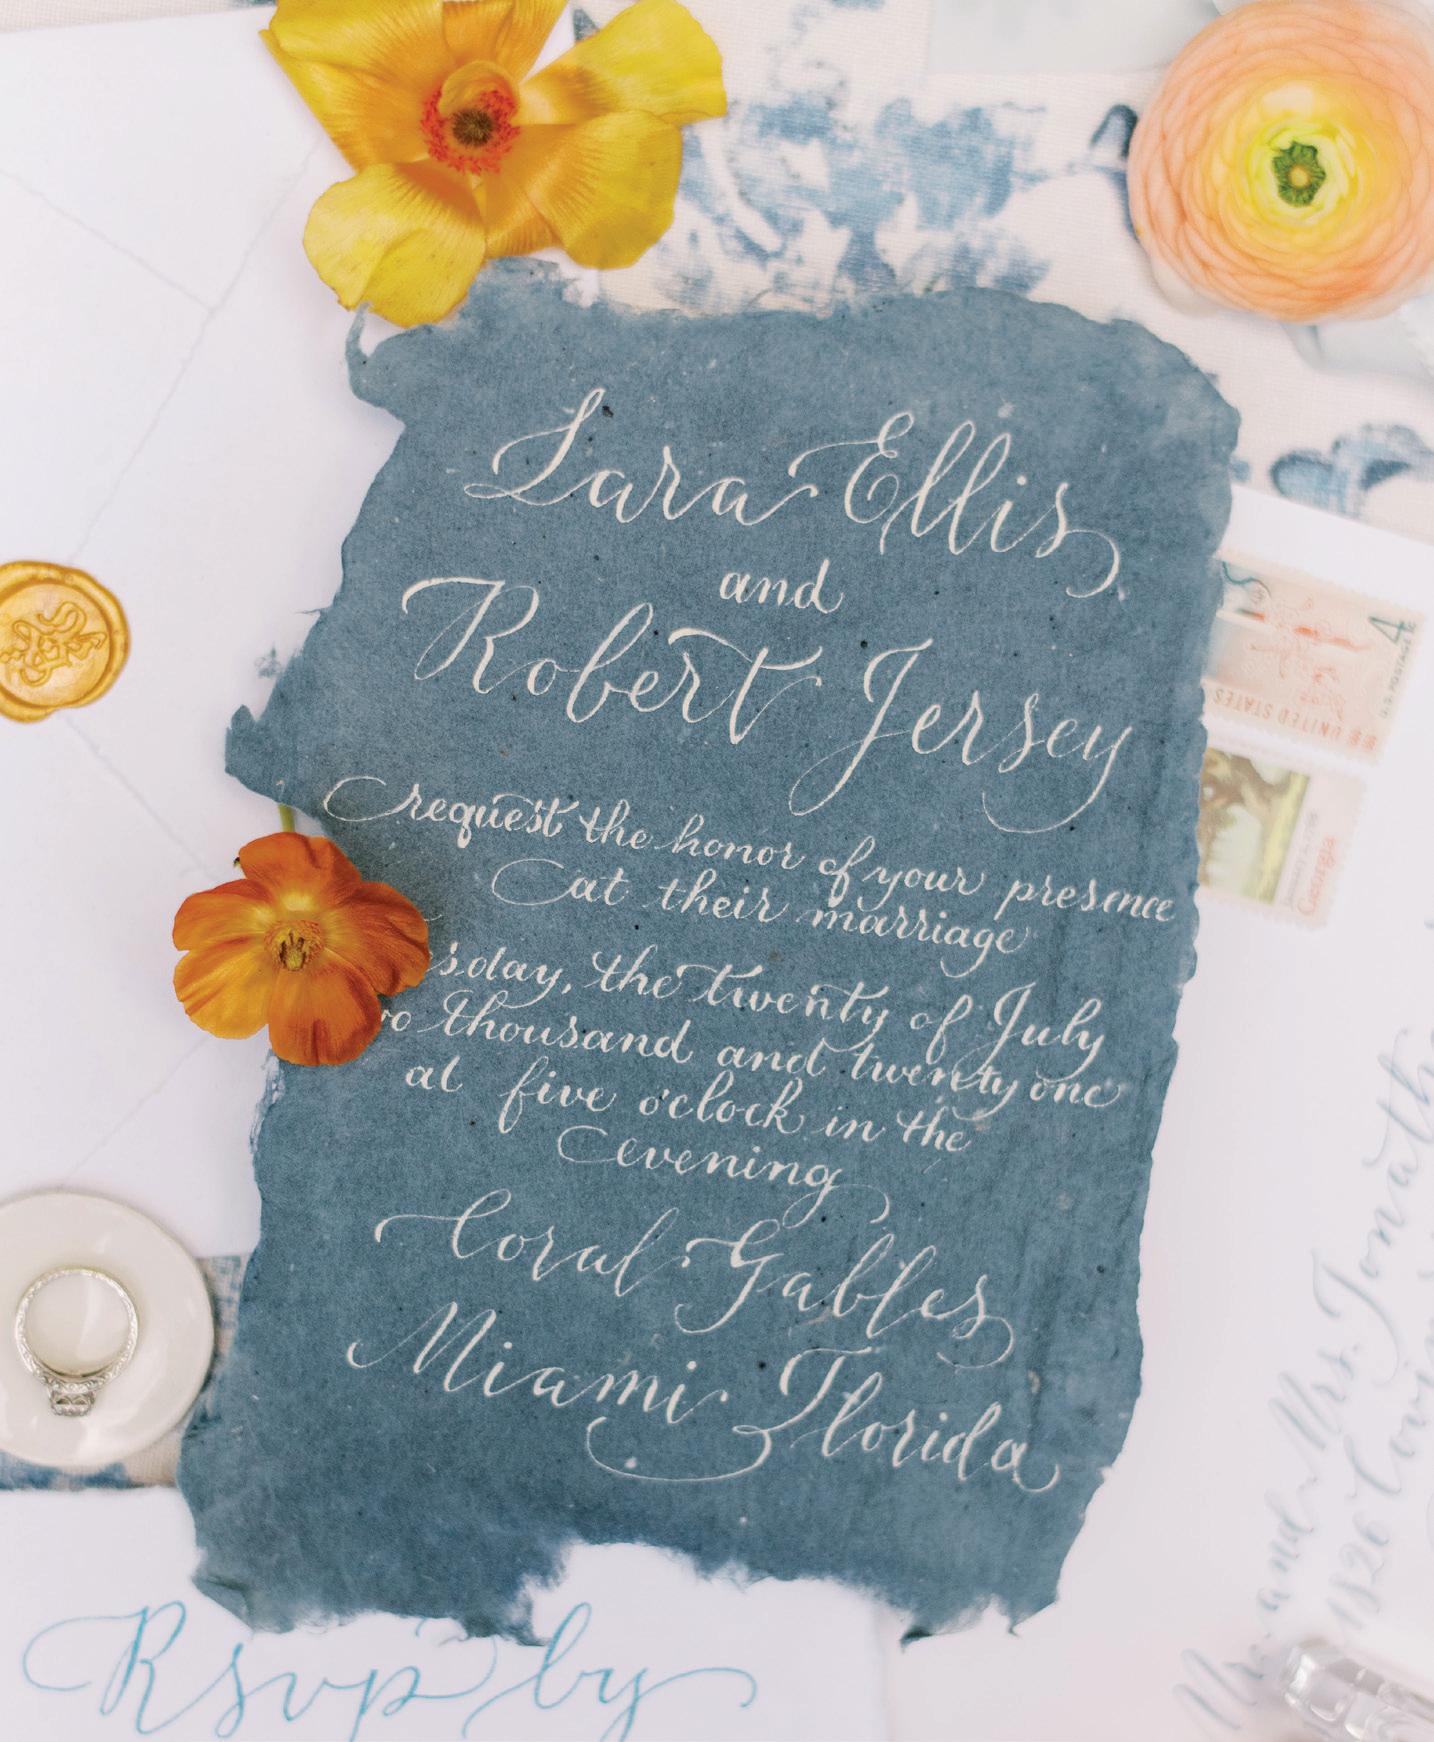 Lara Ellis
and
Robert Jersey
request the honor of your presence
at their marriage
sday, the twenty of July
o thousand and twenty one
at five o'clock in the
evening
Coral Gables
Miami Florida
Rsvp by
4
U.S. POSTAGE
UNITED STATES
Georgia
and Mrs. Jonath
1826